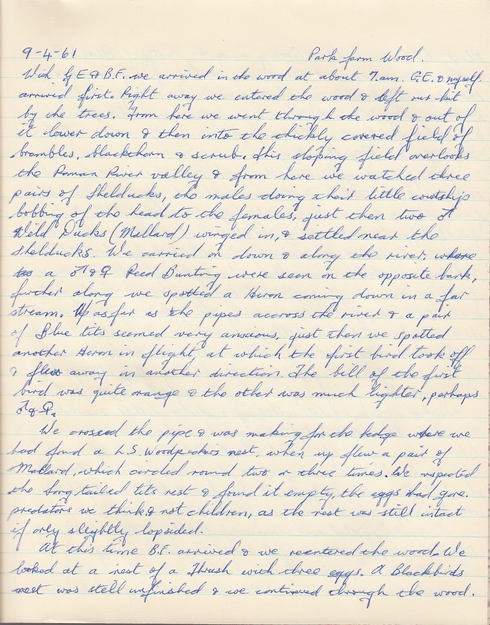 9-4-61 Park farm Wood.
With G.E & B.F. we arrived in the wood at about 7am. G.E. & myself
arrived first. Right away we entered the wood & left our kit
by the trees. From here we went through the wood & out of
it lower down & then into the thickly covered field of
brambles, blackthorn & scrub. This sloping field overlooks
the Roman River valley & from here we watched three
pairs of Shelducks, the males doing their little courtship
bobbing of the head to the females, just then two ♂
Wild Ducks (Mallard) winged in, & settled near the
Shelducks. We carried on down & along the river, where
a ♂ & ♀ Reed Bunting were seen on the opposite bank,
further along we spotted a Heron coming down in a far
stream. Up as far as the pipes accross the river & a pair
of Blue tits seemed very anxious, just then we spotted
another Heron in flight, at which the first bird took off
& flew away in another direction. The bill of the first
bird was quite orange & the other was much lighter, perhaps
♂ & ♀.
We crossed the pipe & was making for the hedge where we
had found a L.S. Woodpeckers nest, when up flew a pair of
Mallard, which circled round two or three times. We inspected
the long tailed tits nest & found it empty, the eggs had gone.
predators we think & not children, as the nest was still intact
if only slightly lopsided.
At this time B.F. arrived & we reentered the wood. We
looked at a nest of a Thrush with three eggs. A Blackbirds
nest was still unfinished & we continued through the wood.